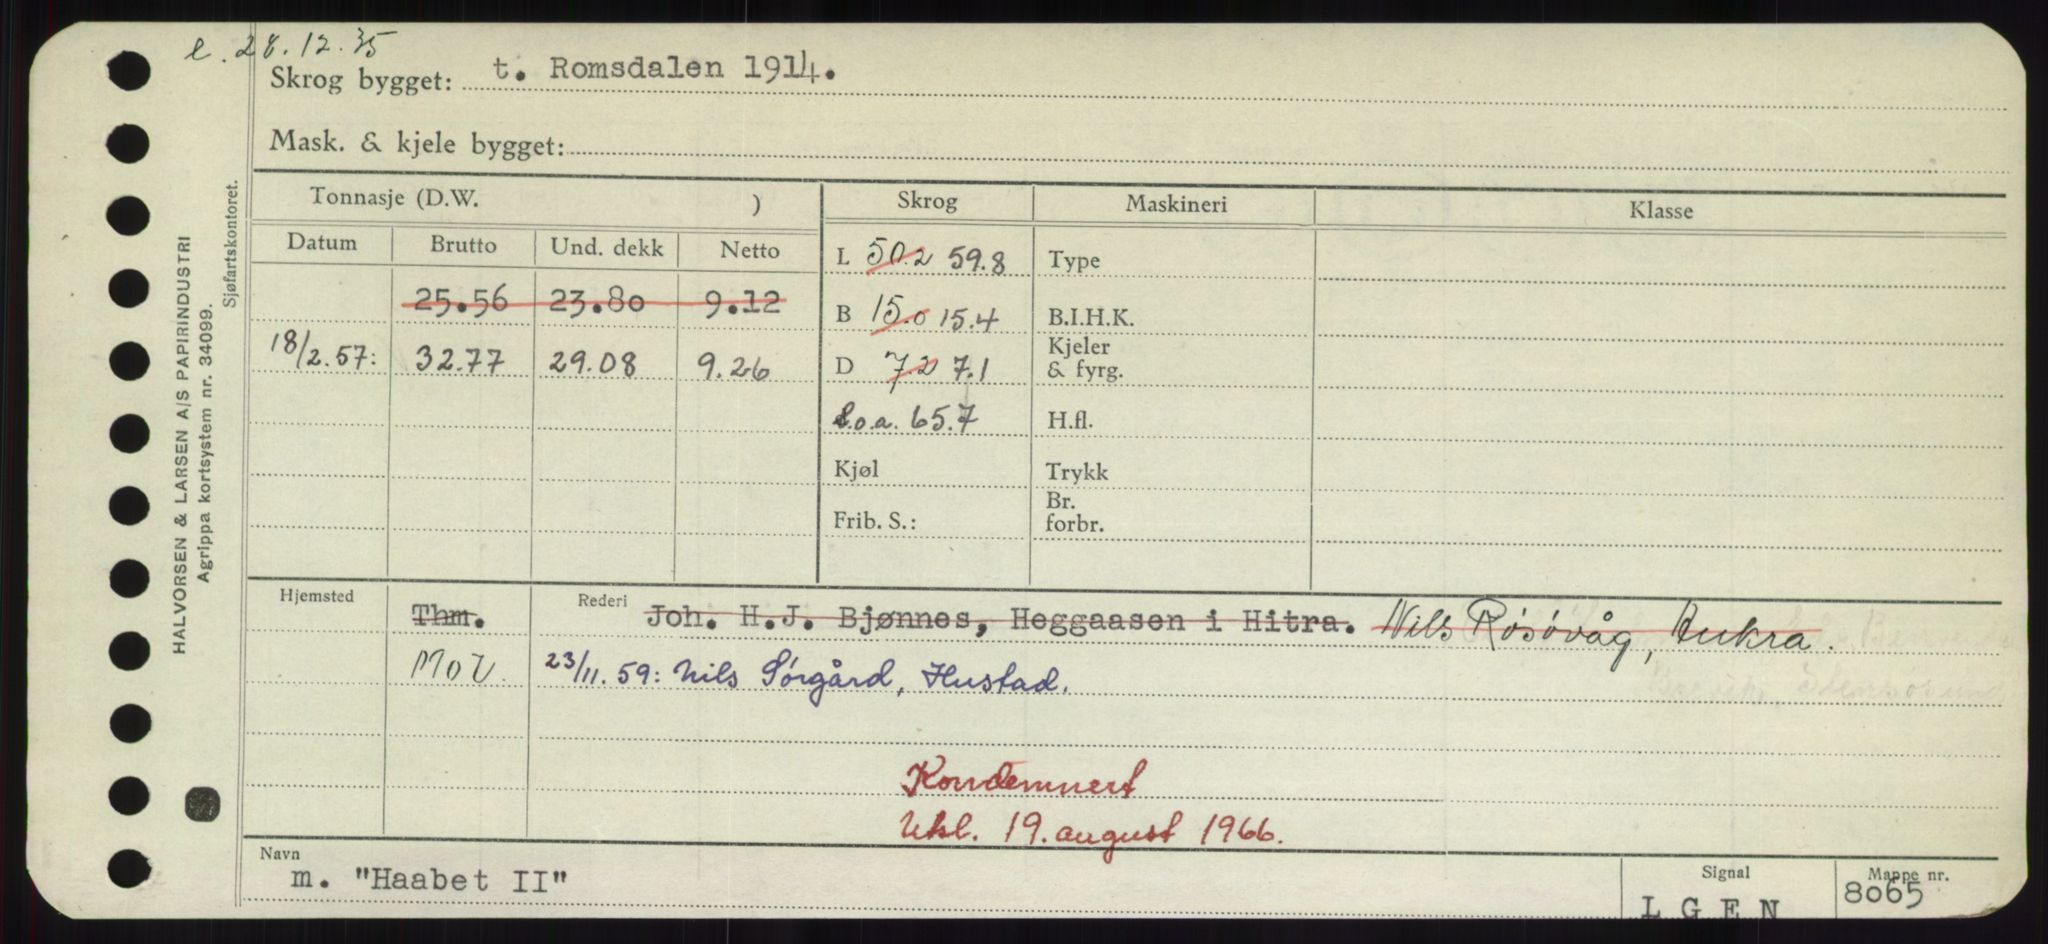 e. 28.12.35
Skrog bygget: t. Romsdalen 1914.
Mask. & kjele bygget:
Tonnasje (D.W. ) Skrog Maskineri Klasse
Datum Brutto Und. dekk Netto
L 50.2 59.8 Type
25.56 23.80 9.12
B 15.0 15.4 B.I.H.K.
18/2.57: 32.77 29.08 9.26
D 7.2 7.1 Kjeler & fyrg.
L.o.a. 65.7 H.fl.
Kjøl Trykk
Frib. S.: Br. forbr.
Hjemsted Thm. Rederi Joh. H.J. Bjønnes, Heggaasen i Hitra. Nils Røsøvåg, Aukra.
M o V. 23/11.59: Nils Sørgård, Hustad.
Kondemnert
Utsl. 19. august 1966.
Navn
m. "Haabet II"
Signal
L G E N
Mappe nr.
8065
HALVORSEN & LARSEN A/S PAPIRINDUSTRI
Agrippa kortsystem nr. 34099.
Sjøfartskontoret.